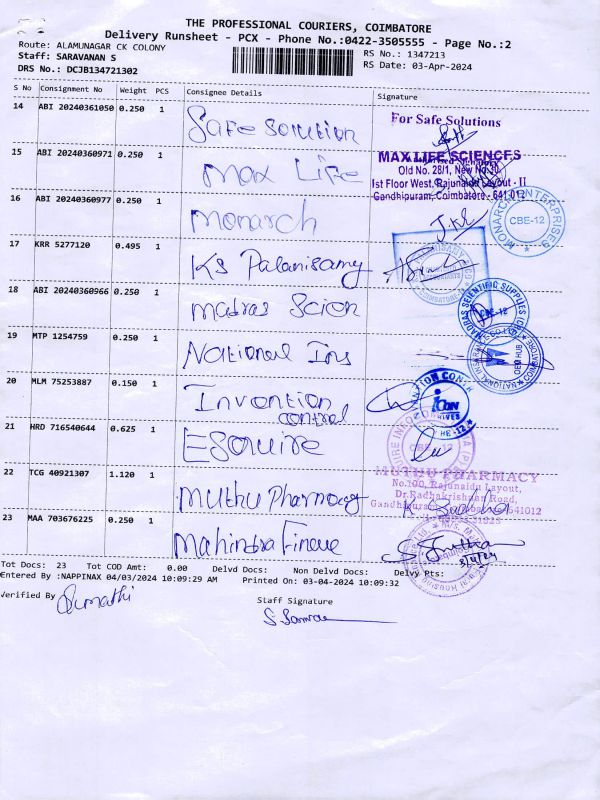 THE PROFESSIONAL COURIERS, COIMBATORE
Delivery Runsheet - PCX - Phone No.:0422-3505555 - Page No.:2
Route: ALAMUNAGAR CK COLONY
RS No.: 1347213
Staff: SARAVANAN S
RS Date: 03-Apr-2024
DRS No.: DCJB134721302
S No Consignment No Weight PCS Consignee Details Signature
14 ABI 20240361050 0.250 1 Safe Solution
For Safe Solutions
15 ABI 20240360971 0.250 1 Max Life
MAX LIFE SCIENCES
Old No. 28/1, New No.10
1st Floor West, Rajunaidu Layout - II
Gandhipuram, Coimbatore - 641 012
16 ABI 20240360977 0.250 1 Monarch
MONARCH ENTERPRISES
CBE-12
17 KRR 5277120 0.495 1 KS Palanisamy
18 ABI 20240360966 0.250 1 Madras Scien
MADRAS SCIENTIFIC SUPPLIES
CBE-12
19 MTP 1254759 0.250 1 National Ins
20 MLM 75253887 0.150 1 Invention
control
21 HRD 716540644 0.625 1 Esquire
22 TCG 40921307 1.120 1 Muthu Pharmacy
MUTHU PHARMACY
No.100, Rajunaidu Layout,
Dr.Radhakrishnan Road,
Gandhipuram, Coimbatore-641012
23 MAA 703676225 0.250 1 Mahindra Finance
3/4/24
Tot Docs: 23 Tot COD Amt: 0.00 Delvd Docs: Non Delvd Docs: Delvy Pts:
Entered By :NAPPINAX 04/03/2024 10:09:29 AM Printed On: 03-04-2024 10:09:32
Verified By Sumathi
Staff Signature